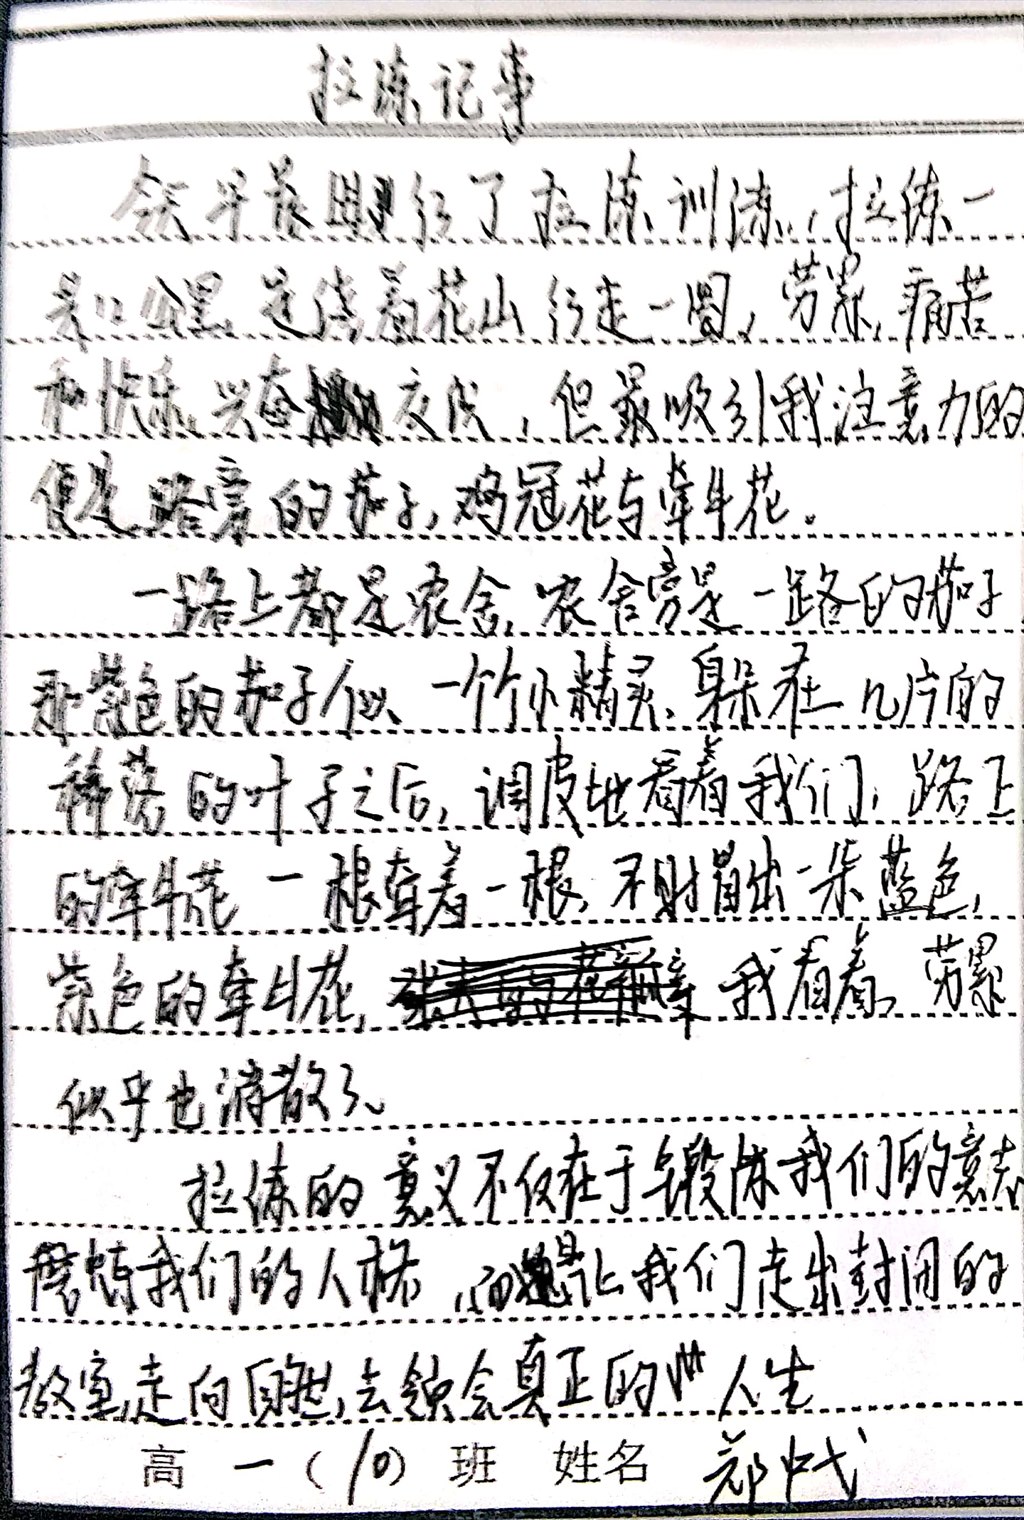 拉练记事
今天早晨进行了拉练训练,拉练一
共12公里,是绕着花山行走一圈,劳累,痛苦
和快乐,兴奋交织,但最吸引我注意力的
便是路旁的茄子,鸡冠花与牵牛花。
一路上都是农舍,农舍旁是一路的茄子
那紫色的茄子似一个个小精灵,躲在几片的
稀落的叶子之后,调皮地看着我们,路上
的牵牛花一根牵着一根,不时冒出一朵蓝色,
紫色的牵牛花,我看着,劳累
似乎也消散了、
拉练的意义不仅在于锻炼我们的意志
磨炼我们的人格,而是让我们走出封闭的
教室,走向自然,去领会真正的"人生
高一(10)班 姓名 郑